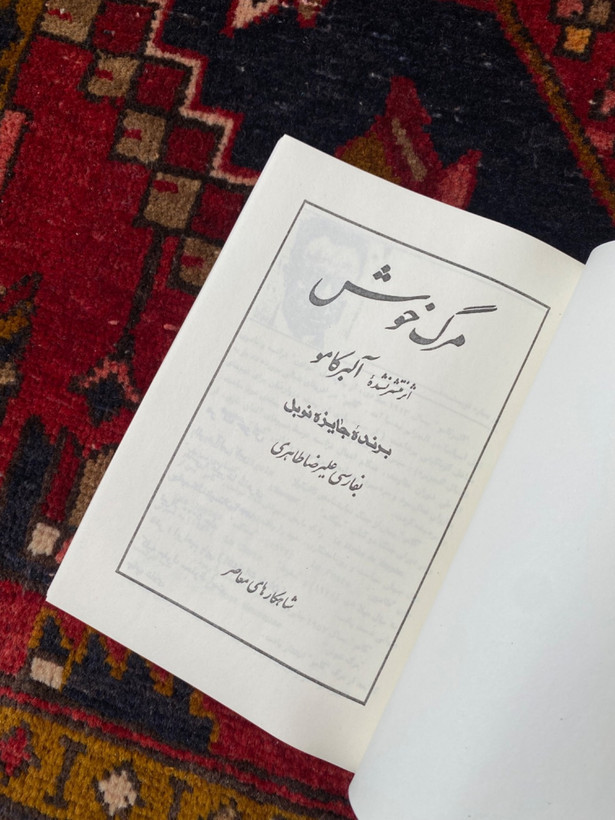 مرگ خوش
اثر منتشر نشدهٔ آلبر کامو
برندهٔ جایزه نوبل
بفارسی علیرضا طاهری
شاهکارهای معاصر